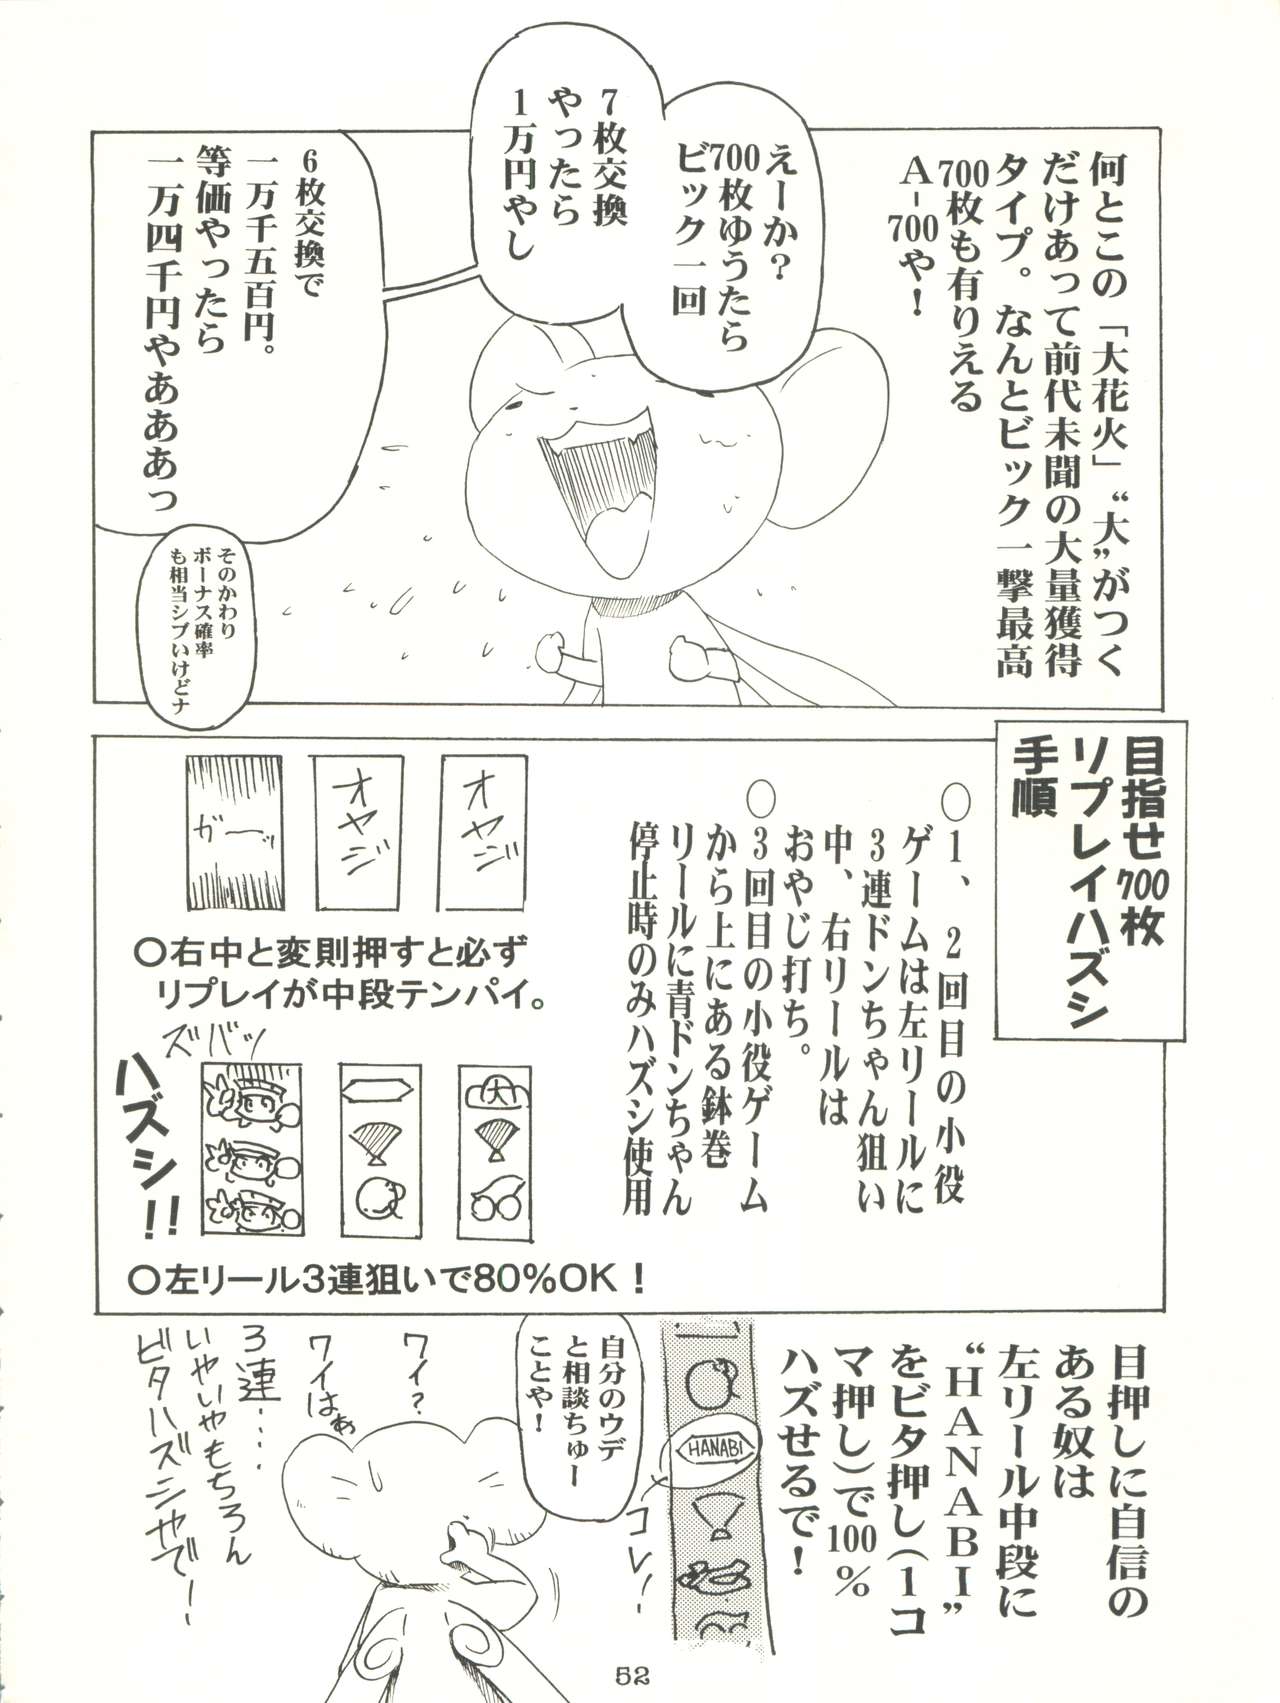 何とこの「大花火」“大”がつく
だけあって前代未聞の大量獲得
タイプ。なんとビック一撃最高
700枚も有りえる
A-700や！
えーか？
700枚ゆうたら
ビック一回
7枚交換
やったら
1万円やし
6枚交換で
一万千五百円。
等価やったら
一万四千円やあああっ
そのかわり
ボーナス確率
も相当シブいけどナ
目指せ700枚
リプレイハズシ
手順
○1、2回目の小役
ゲームは左リールに
3連ドンちゃん狙い
中、右リールは
おやじ打ち。
○3回目の小役ゲーム
から上にある鉢巻
リールに青ドンちゃん
停止時のみハズシ使用
オヤジ
オヤジ
ガーッ
○右中と変則押すと必ず
リプレイが中段テンパイ。
ズバッ
ハズシ!!
大
○左リール3連狙いで80%OK！
目押しに自信の
ある奴は
左リール中段に
“HANABI”
をビタ押し(1コ
マ押し)で100%
ハズせるで！
HANABI
コレ！
自分のウデ
と相談ちゅー
ことや！
ワイ？
ワイはぁ
3連....
いやいやもちろん
ビタハズシやで！
52